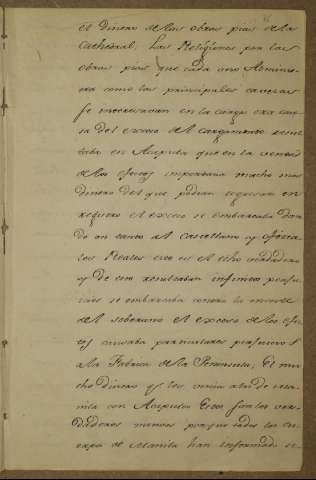 el dinero de las obras pias de la
Cathedral, Las Religiones por las
obras pias que cada uno Adminis
tra como los principales caveras
se interesavan en la carga era cau
sa del exceso del cargamento resul
taba en Acapulco que en la venta
de los efectos importava mucho mas
dinero del que podian regresar en
el exceso se embarcaba dan
do un tanto al Castellano y oficia
les Reales esto es el echo verdadero
y de esto resultaban infinitos perju
icios se embarcaba contra la mente
del soberano el exceso de los efec
tos causaba particulares perjuicios
a la Fabrica de la Peninsula, El mu
cho dinero que les venia a los de ma
nila con Acapulco Estos son los ver
daderos menos porque todos los cu
erpos de Manila han informado si